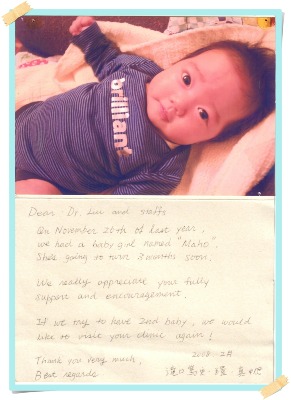 brilliant
Dear Dr. Liu and staffs
On November 26th of last year,
we had a baby girl named "Maho".
She's going to turn 3 months soon.
We really appreciate your fully
support and encouragement.
If we try to have 2nd baby, we would
like to visit your clinic again!
Thank you very much,
Best regards
2008. 2月